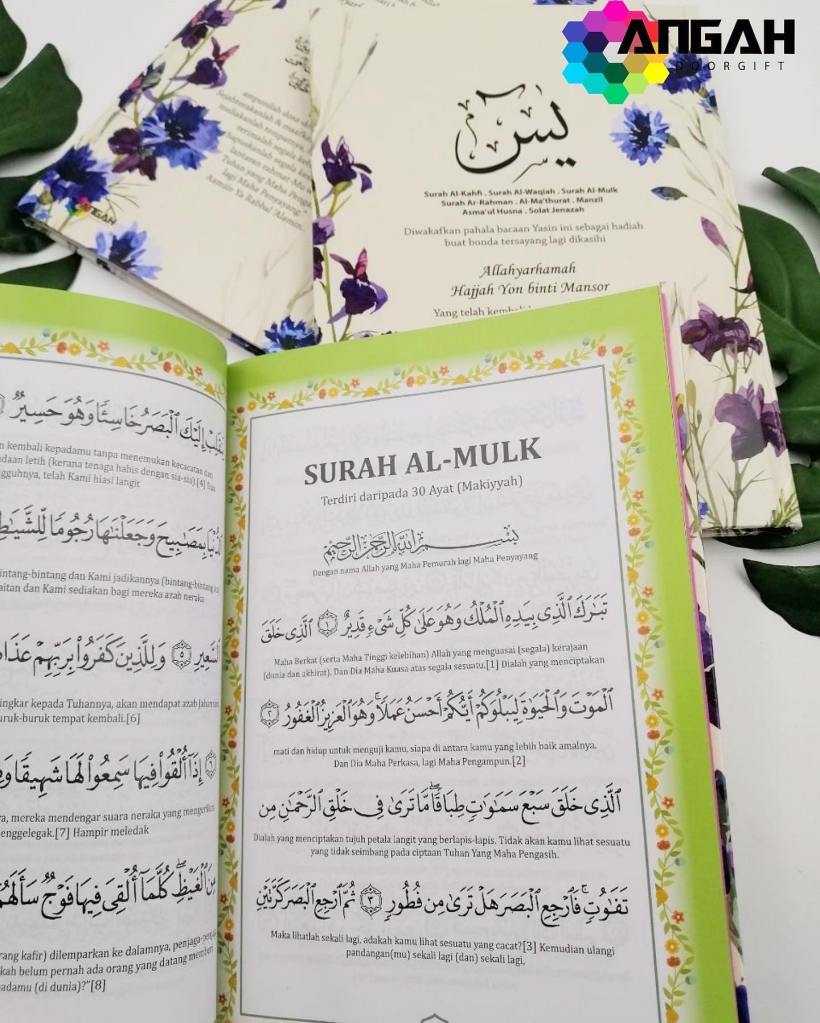 ANGAH
DOORGIFT
يس
Surah Al-Kahfi . Surah Al-Waqiah . Surah Al-Mulk
Surah Ar-Rahman . Al-Ma'thurat . Manzil
Asma'ul Husna . Solat Jenazah
Diwakafkan pahala bacaan Yasin ini sebagai hadiah
buat bonda tersayang lagi dikasihi
Allahyarhamah
Hajjah Yon binti Mansor
Yang telah kembali
ampunilah dosa
terimalah segala
lantaran rahmat-Mu
Tuhan yang Maha
lagi Maha Penyayang"
Aamiin Ya Rabbal 'Alamin.
ANGAH
إِلَيْكَ ٱلْبَصَرُ خَاسِئًا وَهُوَ حَسِيرٌ
kembali kepadamu tanpa menemukan kecacatan dan
letih (kerana tenaga habis dengan sia-sia)[4] Dan
telah Kami hiasi langit
بِمَصَٰبِيحَ وَجَعَلْنَٰهَا رُجُومًا لِّلشَّيَٰطِ
bintang-bintang dan Kami jadikannya (bintang-bintang
dan Kami sediakan bagi mereka azab neraka
ٱلسَّعِيرِ ٥ وَلِلَّذِينَ كَفَرُوا۟ بِرَبِّهِمْ عَذَا
ingkar kepada Tuhannya, akan mendapat azab Jahanam
buruk-buruk tempat kembali.[6]
٦ إِذَآ أُلْقُوا۟ فِيهَا سَمِعُوا۟ لَهَا شَهِيقًا وَ
mereka mendengar suara neraka yang mengerikan
menggelegak.[7] Hampir meledak
مِنَ ٱلْغَيْظِ ۖ كُلَّمَآ أُلْقِىَ فِيهَا فَوْجٌ سَأَلَهُمْ
orang kafir) dilemparkan ke dalamnya, penjaga-penjaga
belum pernah ada orang yang datang memberi
kepadamu (di dunia)?"[8]
SURAH AL-MULK
Terdiri daripada 30 Ayat (Makiyyah)
بِسْمِ ٱللَّهِ ٱلرَّحْمَٰنِ ٱلرَّحِيمِ
Dengan nama Allah yang Maha Pemurah lagi Maha Penyayang
تَبَٰرَكَ ٱلَّذِى بِيَدِهِ ٱلْمُلْكُ وَهُوَ عَلَىٰ كُلِّ شَىْءٍ قَدِيرٌ ١ ٱلَّذِى خَلَقَ
Maha Berkat (serta Maha Tinggi kelebihan) Allah yang menguasai (segala) kerajaan
(dunia dan akhirat). Dan Dia Maha Kuasa atas segala sesuatu.[1] Dialah yang menciptakan
ٱلْمَوْتَ وَٱلْحَيَوٰةَ لِيَبْلُوَكُمْ أَيُّكُمْ أَحْسَنُ عَمَلًا ۚ وَهُوَ ٱلْعَزِيزُ ٱلْغَفُورُ ٢
mati dan hidup untuk menguji kamu, siapa di antara kamu yang lebih baik amalnya.
Dan Dia Maha Perkasa, lagi Maha Pengampun.[2]
ٱلَّذِى خَلَقَ سَبْعَ سَمَٰوَٰتٍ طِبَاقًا ۖ مَّا تَرَىٰ فِى خَلْقِ ٱلرَّحْمَٰنِ مِن
Dialah yang menciptakan tujuh petala langit yang berlapis-lapis. Tidak akan kamu lihat sesuatu
yang tidak seimbang pada ciptaan Tuhan Yang Maha Pengasih.
تَفَٰوُتٍ ۖ فَٱرْجِعِ ٱلْبَصَرَ هَلْ تَرَىٰ مِن فُطُورٍ ٣ ثُمَّ ٱرْجِعِ ٱلْبَصَرَ كَرَّتَيْنِ
Maka lihatlah sekali lagi, adakah kamu lihat sesuatu yang cacat?[3] Kemudian ulangi
pandangan(mu) sekali lagi (dan) sekali lagi,